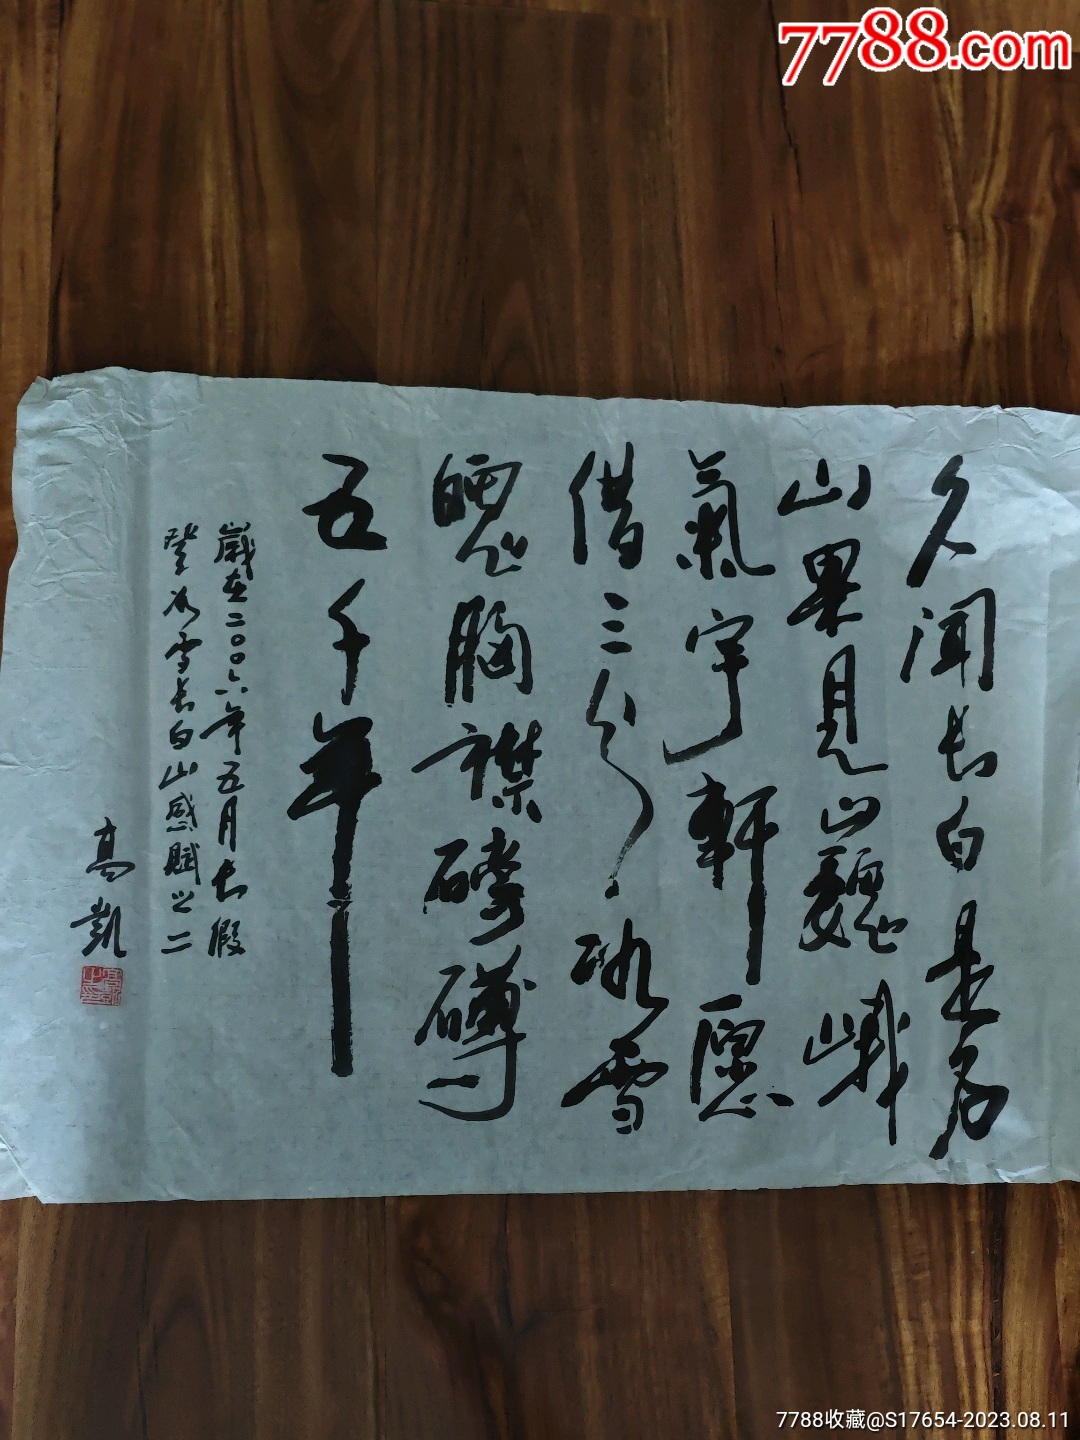 7788.com
久闻长白是名
山果見巍峨
氣宇軒愿
借三分冰雪
魄胸襟磅礴
五千年
歲在二〇〇六年五月长假
登冰雪长白山感賦之二
高凱
7788收藏@S17654-2023.08.11